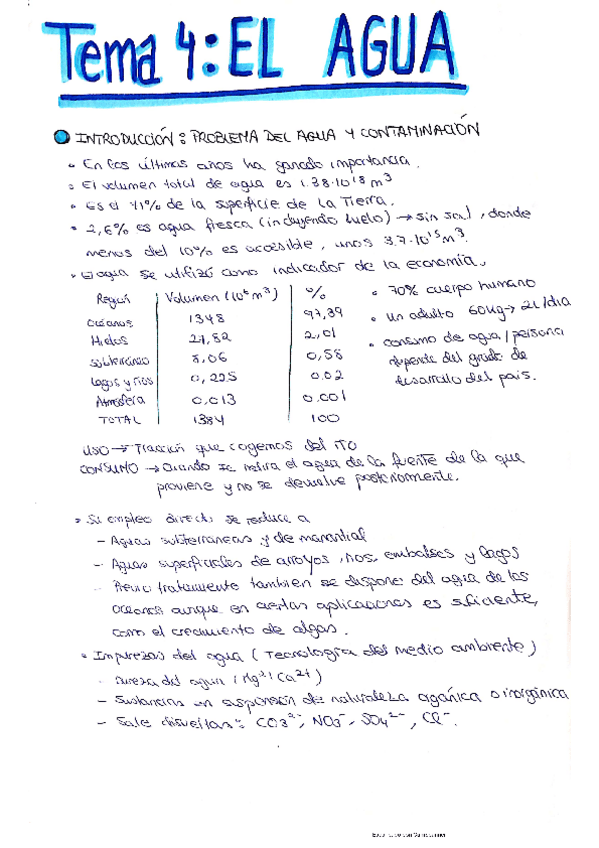 Tema 4: EL AGUA
INTRODUCCIÓN: PROBLEMA DEL AGUA Y CONTAMINACIÓN
• En los últimos años ha ganado importancia.
• El volumen total de agua es 1.38·10¹⁸ m³
• Es el 71% de la superficie de la Tierra.
• 2,6% es agua fresca (incluyendo hielo) → sin sal, donde
menos del 10% es accesible, unos 3.7·10¹⁵ m³.
• El agua se utiliza como indicador de la economía.
Región | Volumen (10⁶ m³) | %
Océanos | 1348 | 97,39
Hielos | 27,82 | 2,01
Subterráneo | 8,06 | 0,58
Lagos y ríos | 0,225 | 0.02
Atmósfera | 0.013 | 0.001
TOTAL | 1384 | 100
• 70% cuerpo humano
• Un adulto 60kg → 2L/día
• consumo de agua/persona
depende del grado de
desarrollo del país.
USO → Fracción que cogemos del río
CONSUMO → Cuando se retira el agua de la fuente de la que
proviene y no se devuelve posteriormente.
• Su empleo directo se reduce a
- Aguas subterráneas y de manantial
- Aguas superficiales de arroyos, ríos, embalses y lagos
- Previo tratamiento también se dispone del agua de los
océanos aunque en ciertas aplicaciones es suficiente,
como el crecimiento de algas.
• Impurezas del agua (Tecnología del medio ambiente)
- Dureza del agua (Mg²⁺ Ca²⁺)
- Sustancias en suspensión de naturaleza orgánica o inorgánica
- Sales disueltas: CO3²⁻, NO3⁻, SO4²⁻, Cl⁻.